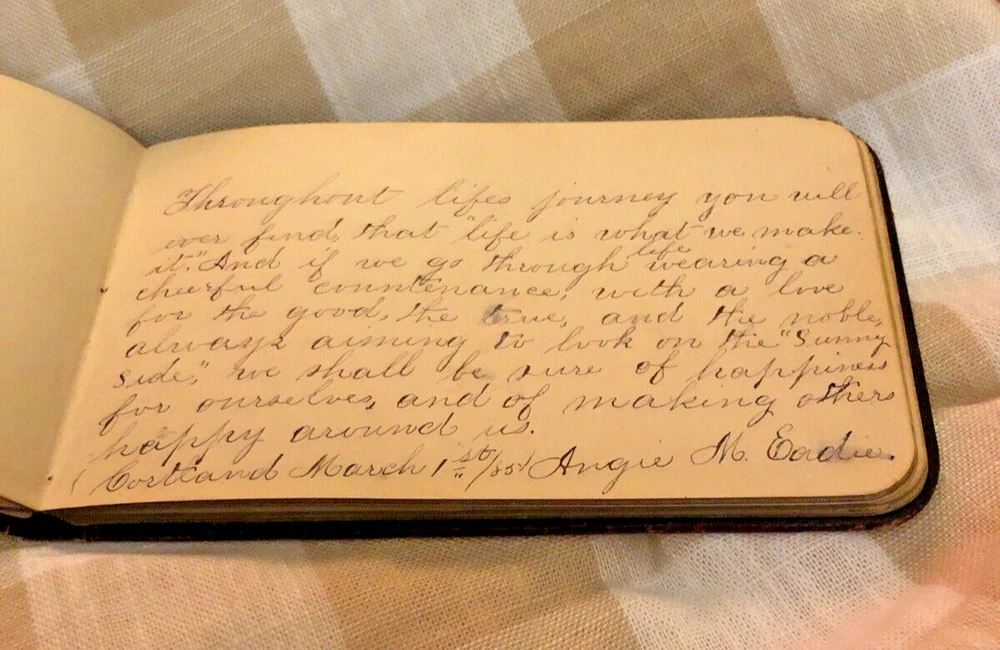 Throughout lifes journey you will
ever find, that "life is what we make
it." And if we go through life wearing a
cheerful countenance, with a love
for the good, the true, and the noble,
always aiming to look on the "Sunny
Side," we shall be sure of happiness
for ourselves, and of making others
happy around us.
Cortland March 1st/85 Angie M. Eadie.